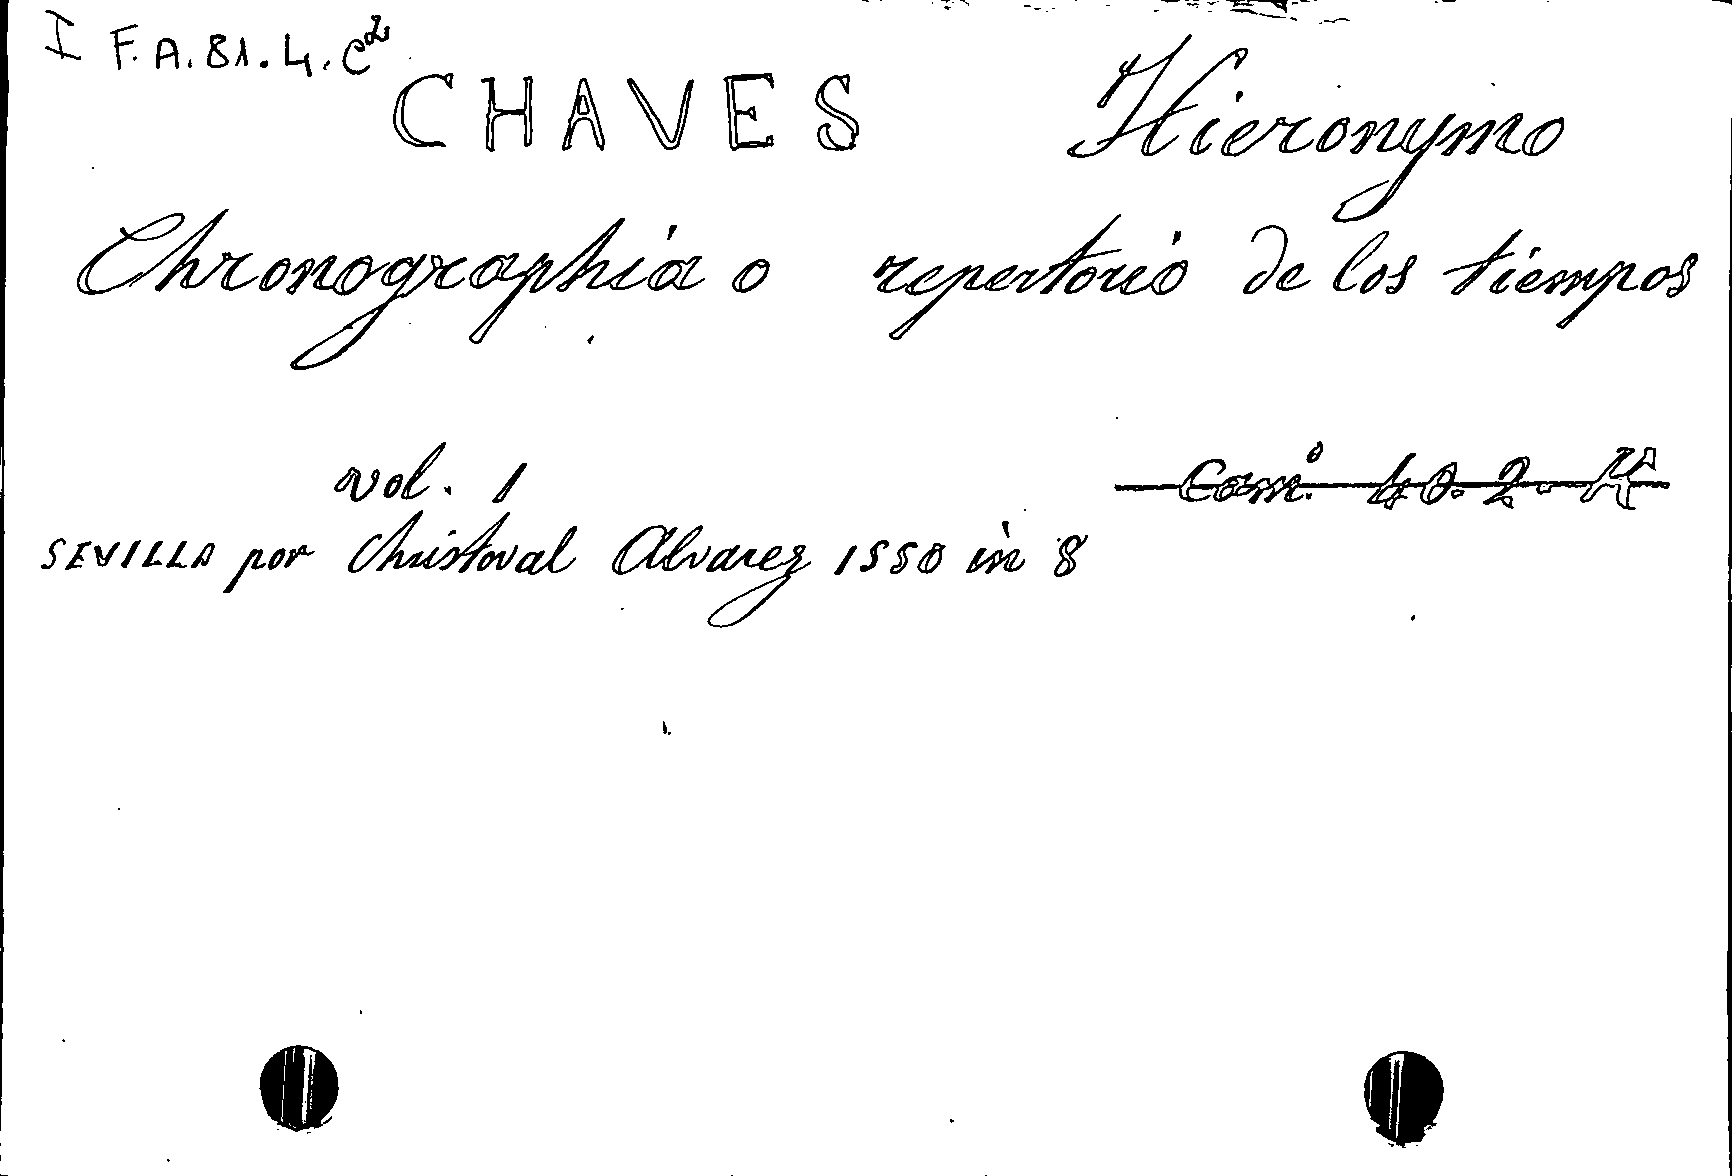 I F.A.81.4.C2
CHAVES Hieronymo
Chronographia o repertorio de los tiempos
vol. 1 Cam.o 40.2-K
SEVILLA por Christoval Alvarez 1550 in 8